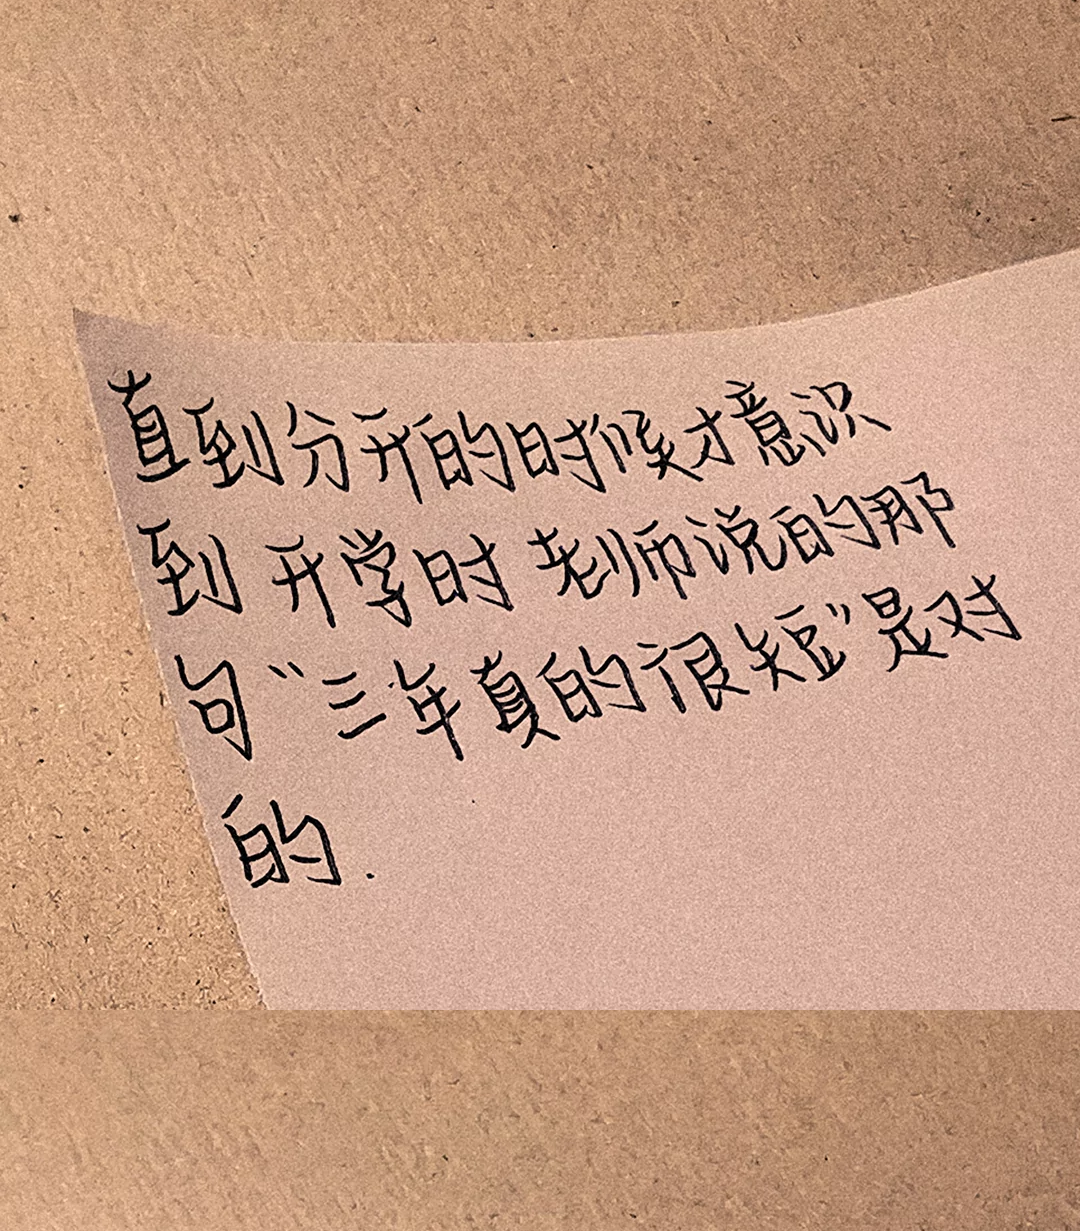 直到分开的时候才意识
到 开学时 老师说的那
句“三年真的很短”是对
的.